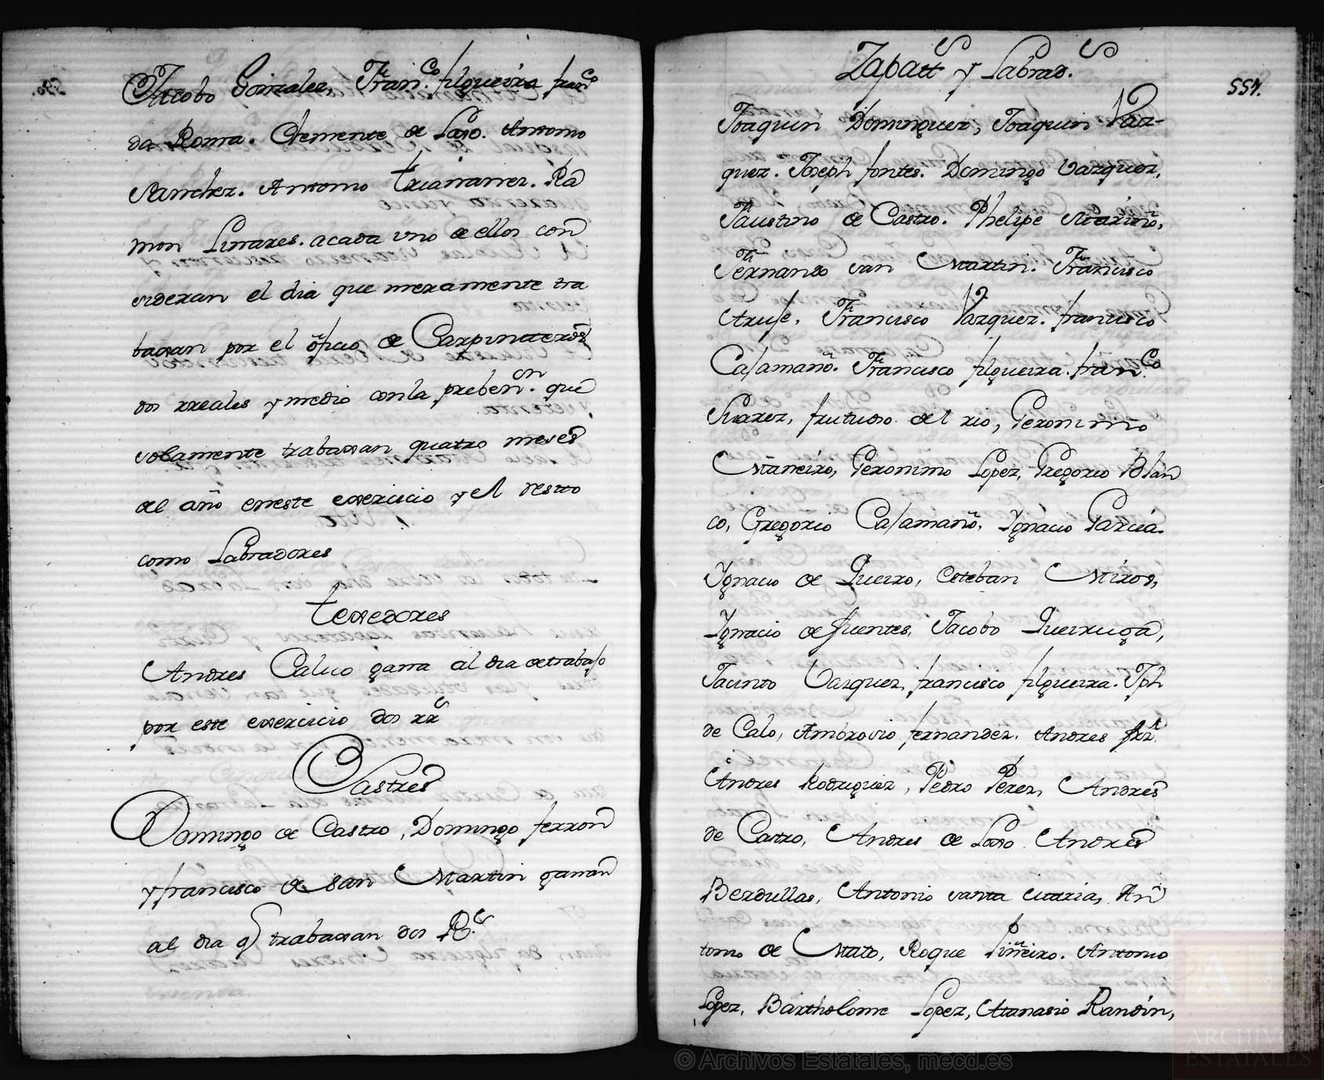 Jacobo Gonzalez, Fran.co filgueira fran.co
da Roma. Clemente de Lago. Antonio
Sanchez. Antonio triananes. Ra
mon Linares. acada uno de ellos con
sideran el dia que meramente tra
baxan por el ofizio de Carpinteros
dos rreales y medio conla preben.on que
solamente trabaxan quatro meses
del año eneste exercicio y el resto
como Labradores
texedores
Andres Calvo gana al dia detrabajo
por este exercicio dos rr.s
Sastres
Domingo de Castro, Domingo ferron
y francisco de san Martin ganan
al dia q trabaxan dos R.s
Zapatt.s y Labrad.s
554.
Joaquin Dominguez, Joaquin Vaz-
quez. Joseph fontes. Domingo Vazquez,
Faustino de Castro. Phelipe Mariño,
Fernando san Martin. Francisco
Francisco Vazquez. francisco
Casamañ. Francisco filgueira. fran.co
Suarez, frutuoso del rio, Geronimo
Maneiro, Geronimo Lopez, Gregorio Blan
co, Gregorio Casamañ. Ignacio Garcia.
Ignacio de Queiro, Esteban Miros,
Ignacio de fuentes, Jacobo Queiruga,
Jacinto Vazquez, francisco filgueira. Jph
de Calo, Ambrosio fernandez. Andres frz.
Andres Rodriguez, Pedro Perez, Andres
de Castro, Andres de Lago Andres
Berdullas, Antonio santa maria, An
tonio de Mato, Roque Piñeiro. Antonio
Lopez, Bartholome Lopez, Atanasio Randin,
© Archivos Estatales, mecd.es
ARCHIVOS
ESTATALES